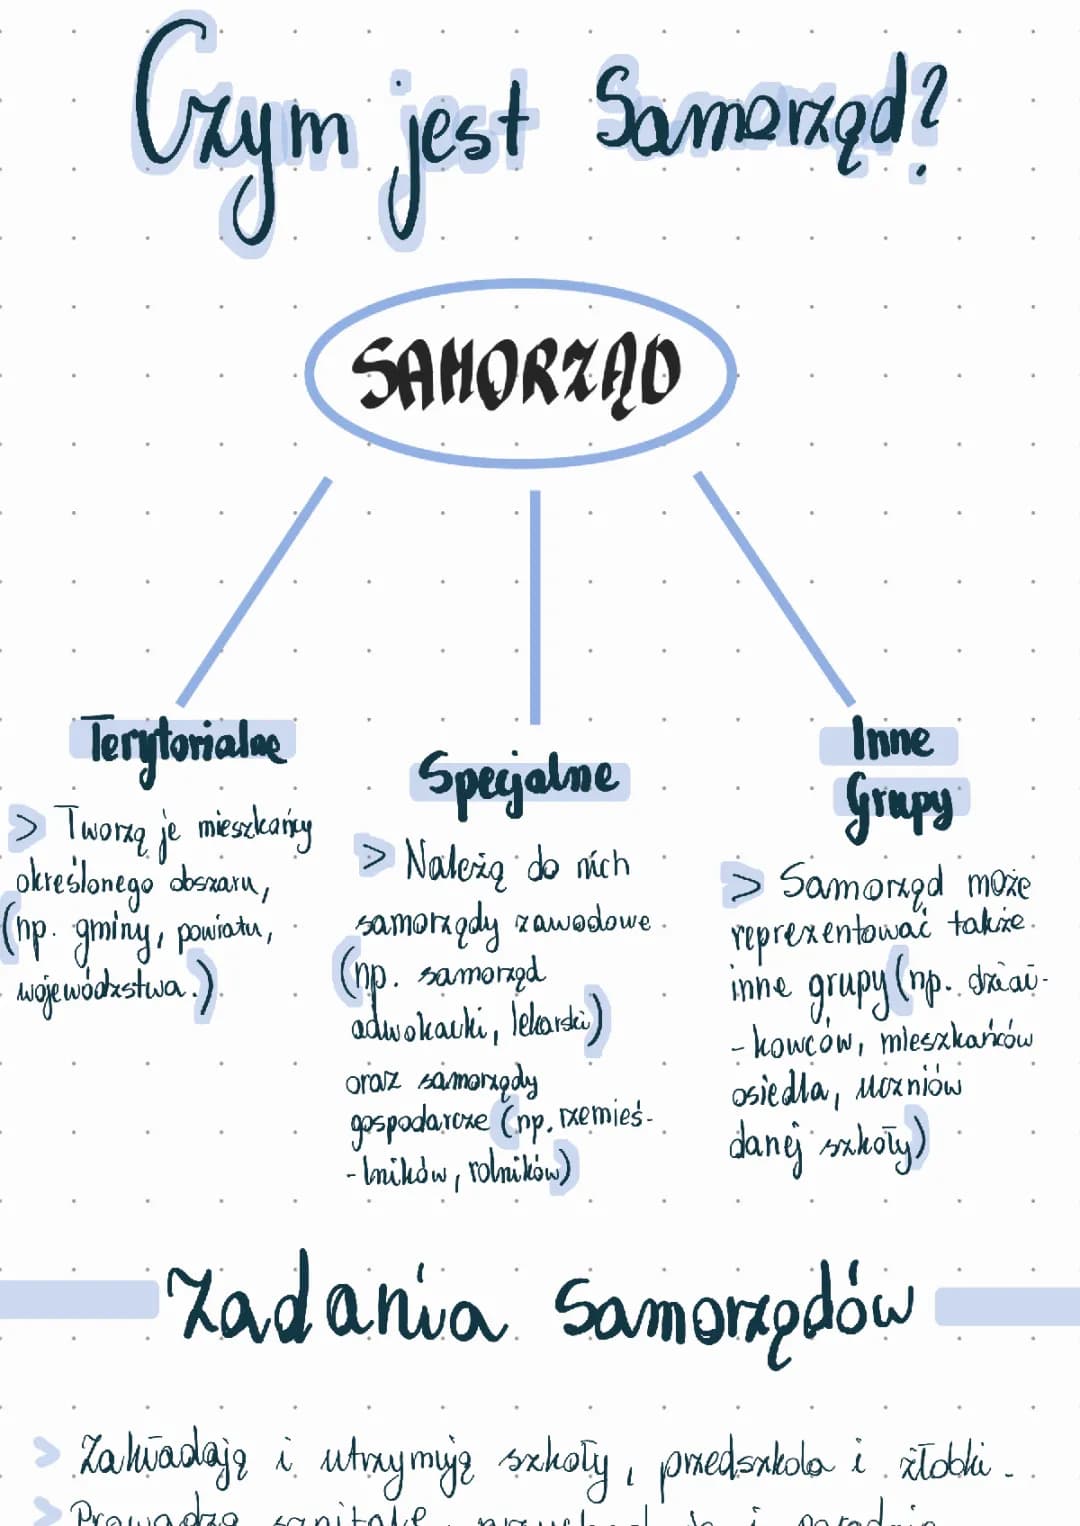 Czym jest Samorząd?
SAMORZĄD
Terytorialne
> Tworzą je mieszkańcy
określonego obszaru,
(np. gminy, powiatu,
województwa.)
Specjalne
> Należą do nich
samorządy zawodowe
(np. samorząd
adwokacki, lekarski)
oraz samorządy
gospodarcze (np. rzemieś-
-lników, rolników)
Inne
Grupy
> Samorząd może
reprezentować także
inne grupy (np. dział-
-kowców, mieszkańców
osiedla, uczniów
danej szkoły)
Zadania Samorządów
> Zakładają i utrzymują szkoły, przedszkola i żłobki.
> Prowadzą szpitale, przychodnie i poradnie